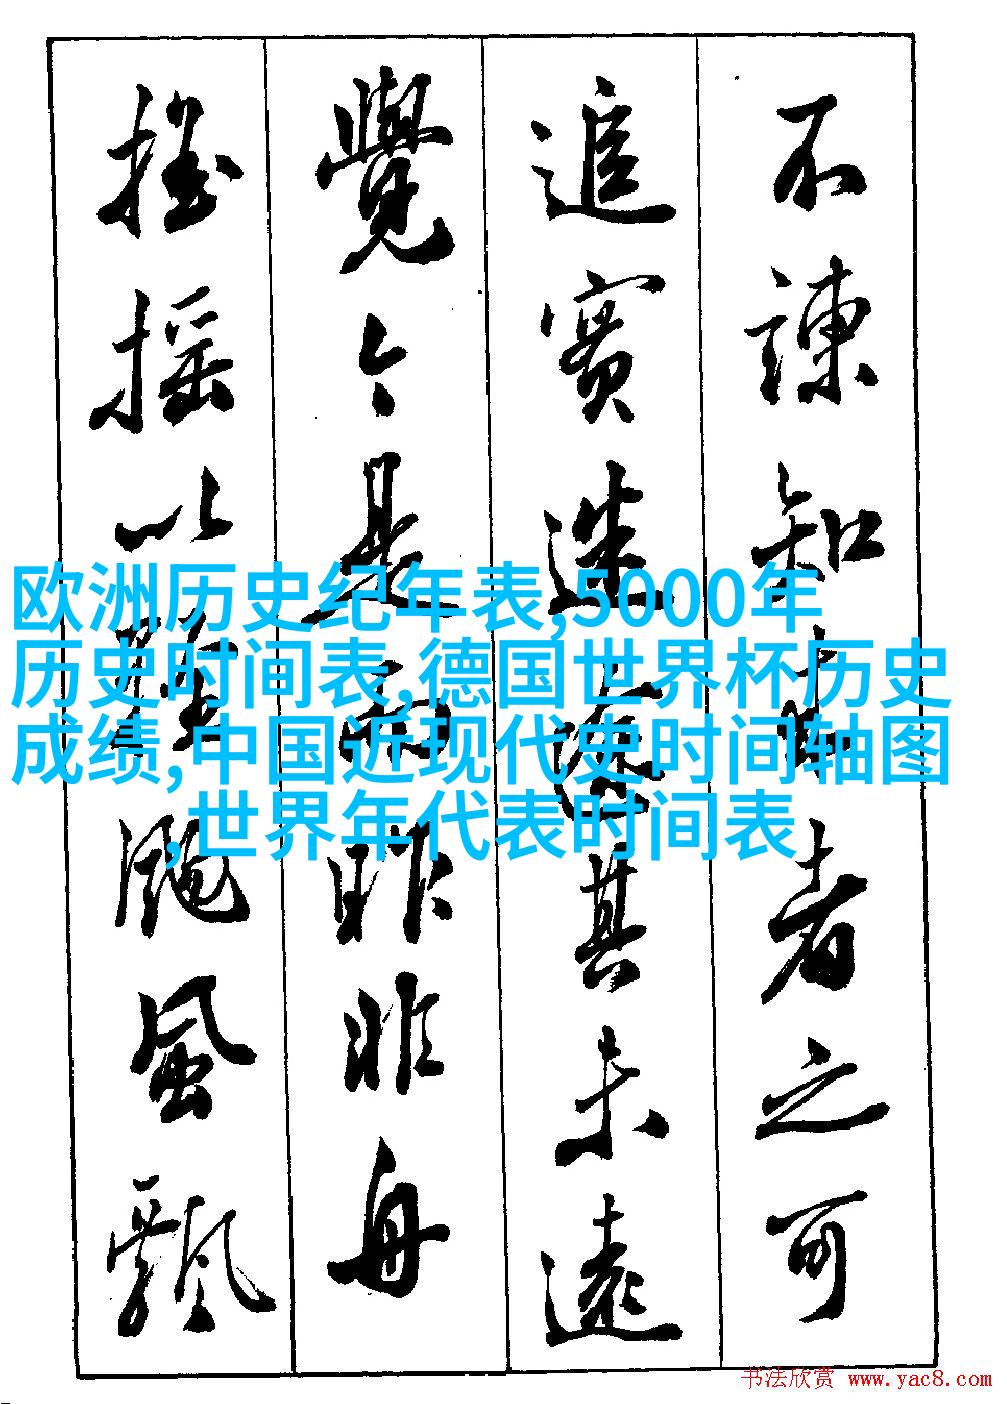 不諫知来者之可
追實迷途其未遠
覺今是而昨非舟
搖搖以輕颺風飄
欧洲历史纪年表,5000年
历史时间表,德国世界杯历史
成绩,中国近现代史时间轴图
,世界年代表时间表
书法欣赏 www.yac8.com